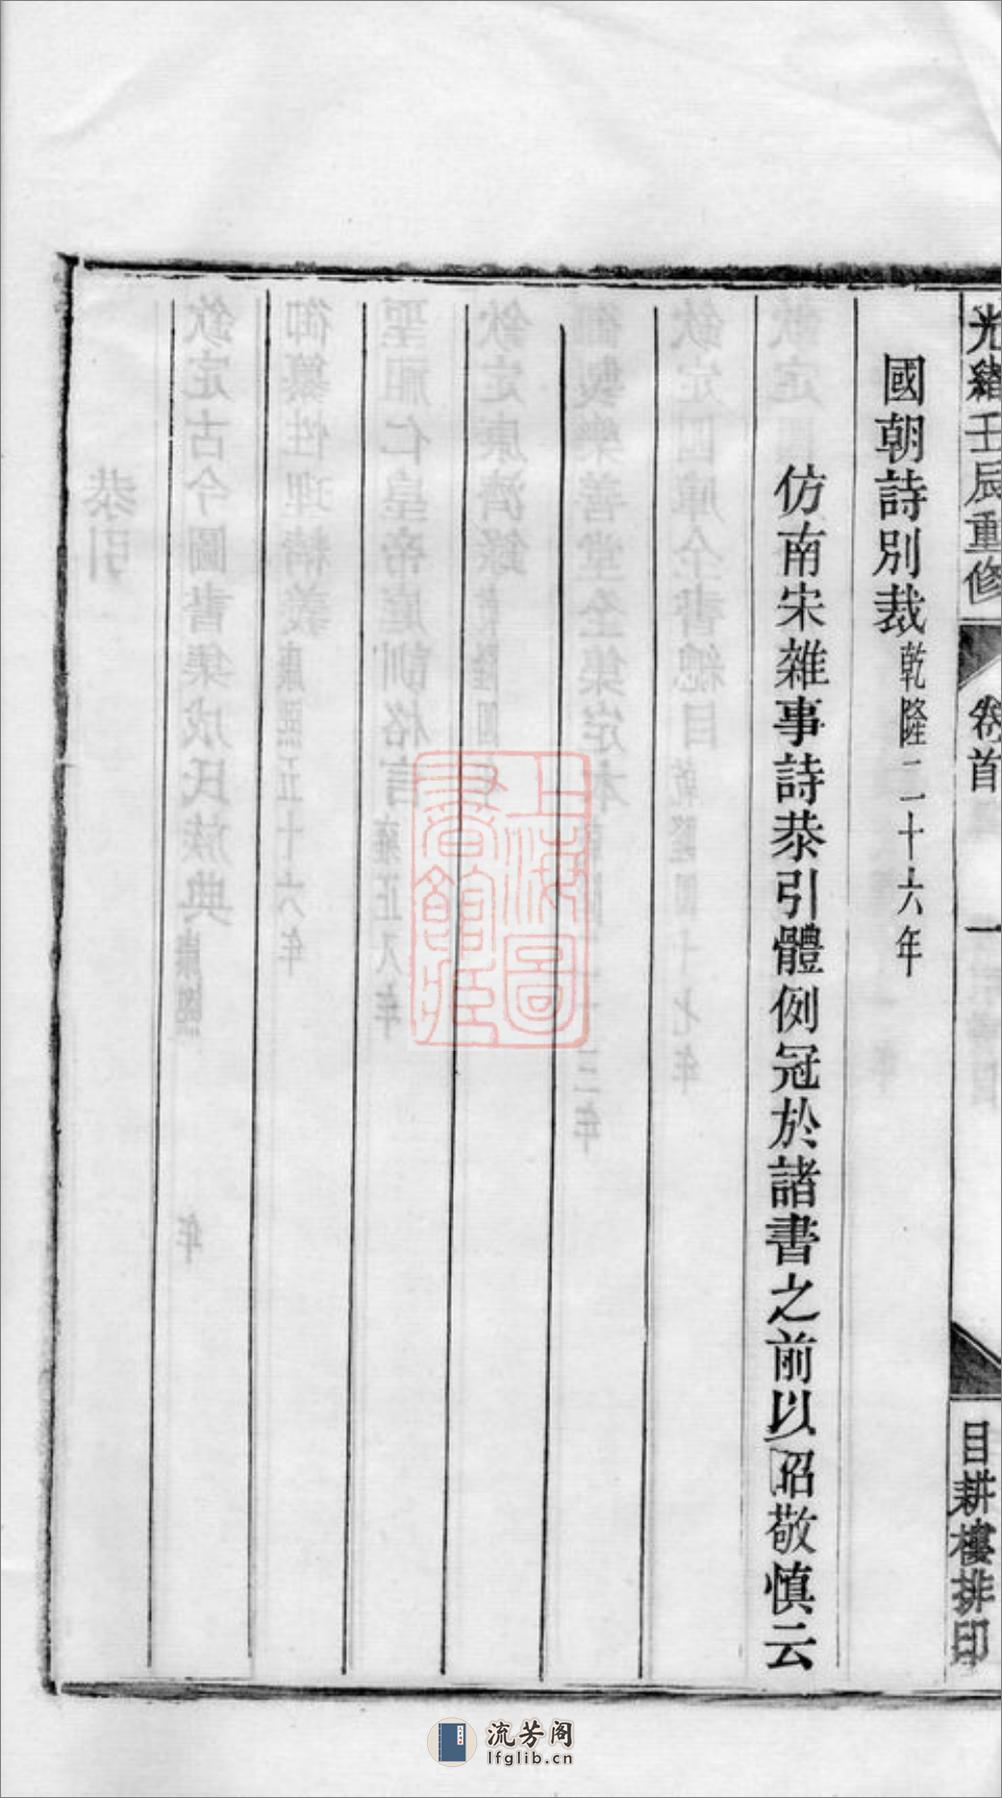 光緒壬辰重修
卷首
一
目耕樓排印
國朝詩別裁乾隆二十六年
仿南宋雜事詩恭引體例冠於諸書之前以昭敬慎云
上海圖
書館藏
流芳阁
lfglib.cn